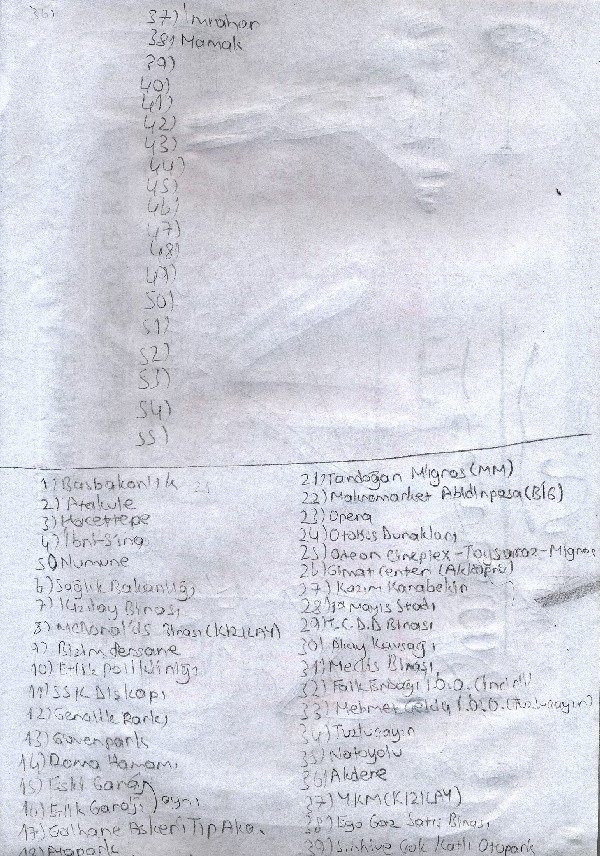 36)
37) İmrahor
38) Mamak
39)
40)
41)
42)
43)
44)
45)
46)
47)
48)
49)
50)
51)
52)
53)
54)
55)
1) Başbakanlık
2) Atakule
3) Hacettepe
4) İbni-Sina
5) Numune
6) Sağlık Bakanlığı
7) Kızılay Binası
8) McDonald's Binası (KIZILAY)
9) Bizim dersane
10) Etlik polikliniği
11) SSK Dışkapı
12) Gençlik Parkı
13) Güvenpark
14) Roma Hamamı
15) Eski Garaj
16) Etlik Garajı) aynı
17) Gülhane Askeri Tıp Aka.
18) Atapark
21) Tandoğan Migros (MM)
22) Makromarket Abidinpaşa (BİG)
23) Opera
24) Otobüs Durakları
25) Odeon Cineplex - Toysaraz - Migros
26) Gimat Center (Akköprü)
27) Kazım Karabekir
28) 19 Mayıs Stadı
29) T.C.D.D Binası
30) Akay Kavşağı
31) Meclis Binası
32) Faik Erbağı İ.Ö.O. (İncirli)
33) Mehmet İ.Ö.O. (Tuzluçayır)
34) Tuzluçayır
35) Natoyolu
36) Akdere
37) YKM (KIZILAY)
38) Ego Gaz Satış Binası
39) Sıhhiye Çok Katlı Otopark